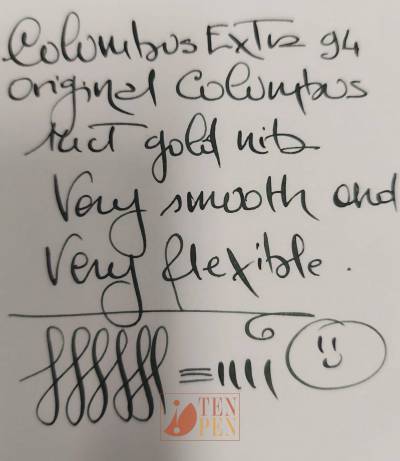 Columbus Extra 94
original Columbus
14ct gold nib
Very smooth and
very flexible.
TEN
PEN